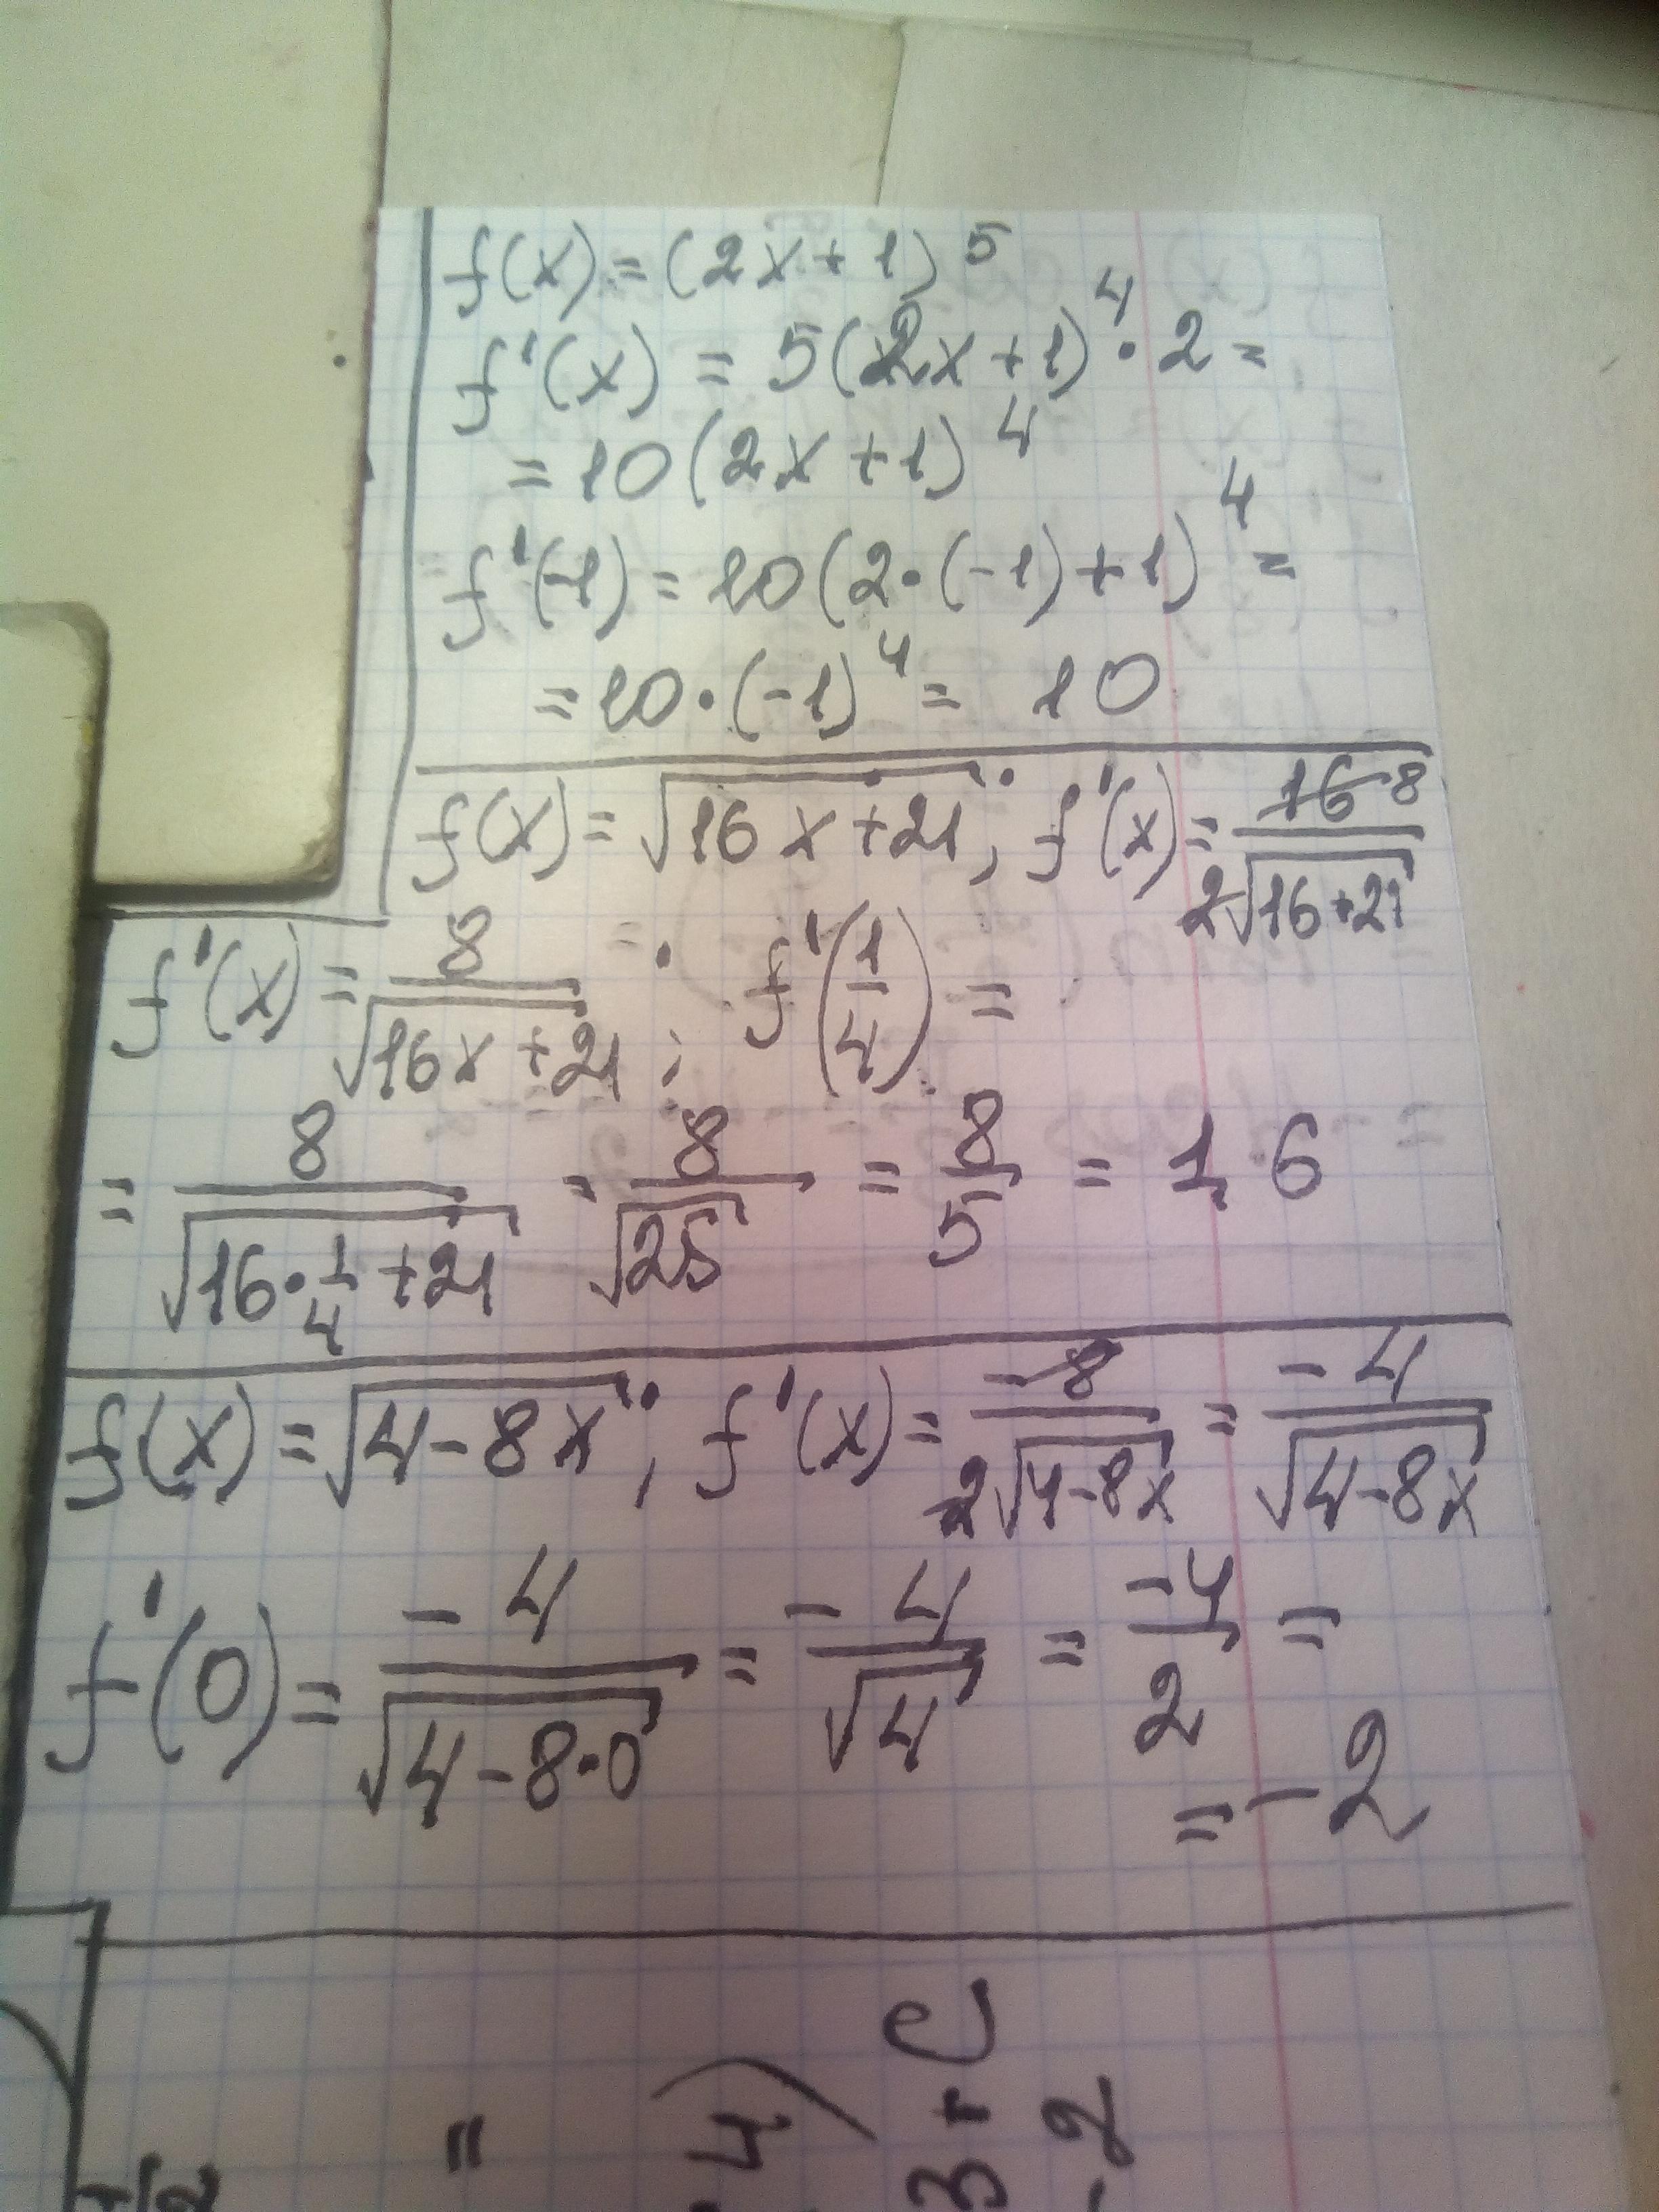 f(x) = (2x+1)^5
f'(x) = 5(2x+1)^4 · 2 =
= 10(2x+1)^4
f'(-1) = 10(2·(-1)+1)^4 =
= 10·(-1)^4 = 10
f(x) = √(16x+21); f'(x) = 16 8/(2√(16+21))
f'(x) = 8/√(16x+21); f'(1/4) =
= 8/√(16·1/4+21) = 8/√25 = 8/5 = 1,6
f(x) = √(4-8x); f'(x) = -8/(2√(4-8x)) = -4/√(4-8x)
f'(0) = -4/√(4-8·0) = -4/√4 = -4/2 =
= -2